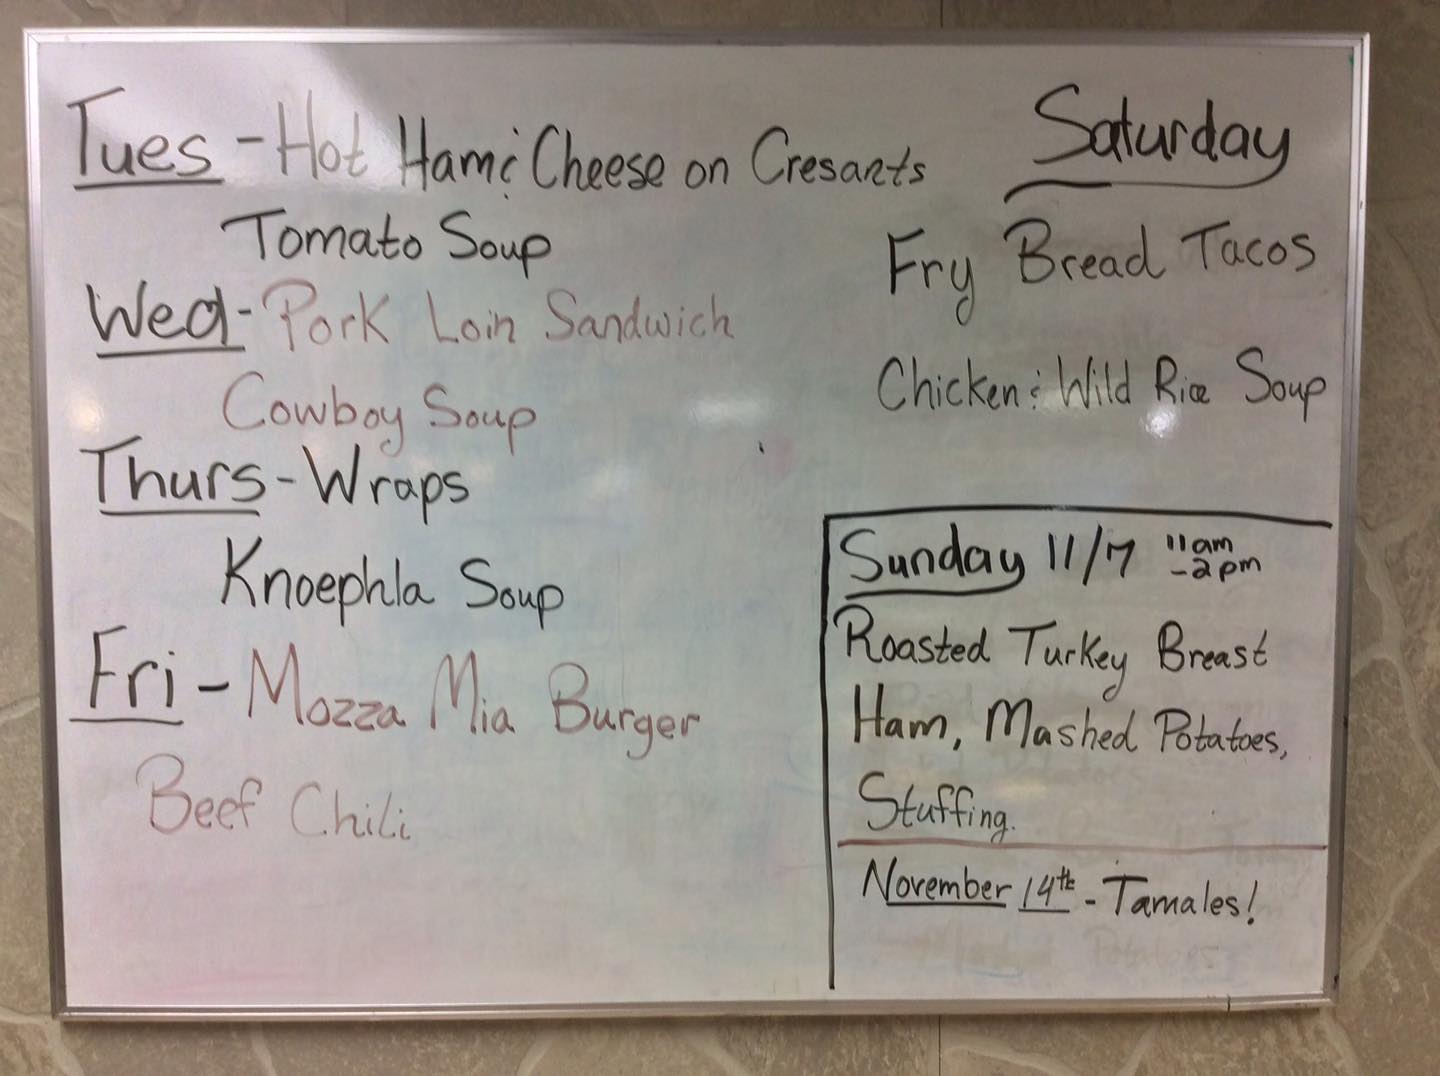 Tues - Hot Ham & Cheese on Cresants
Tomato Soup
Wed - Pork Loin Sandwich
Cowboy Soup
Thurs - Wraps
Knoephla Soup
Fri - Mozza Mia Burger
Beef Chili
Saturday
Fry Bread Tacos
Chicken & Wild Rice Soup
Sunday 11/7 11am
- 2pm
Roasted Turkey Breast
Ham, Mashed Potatoes,
Stuffing.
November 14th - Tamales!